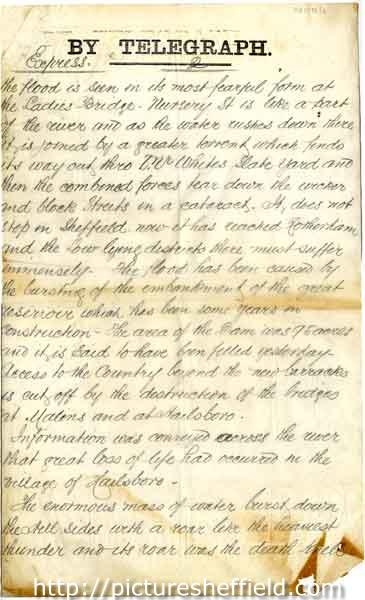 BY TELEGRAPH.
Express. 2
the flood is seen in its most fearful form at
the Ladies Bridge. Nursery St is like a part
of the river and as the water rushes down there
it is joined by a greater torrent which finds
its way out thro T. W. Whites Slate yard and
then the combined forces tear down the wicker
and block streets in a cataract. It does not
stop in Sheffield now it has reached Rotherham
and the low lying districts there must suffer
immensely. The flood has been caused by
the bursting of the embankment of the great
reservour which has been some years in
construction - The area of the Dam was 95 acres
and it is said to have been filled yesterday
Access to the Country beyond the new barracks
is cut off by the destruction of the bridges
at Malons and at Hailsboro.
Information was conveyed across the river
that great loss of life had occurred in the
village of Hailsboro -
The enormous mass of water burst down
the hill sides with a roar like the heaviest
thunder and its roar was the death knell
http://picturesheffield.com